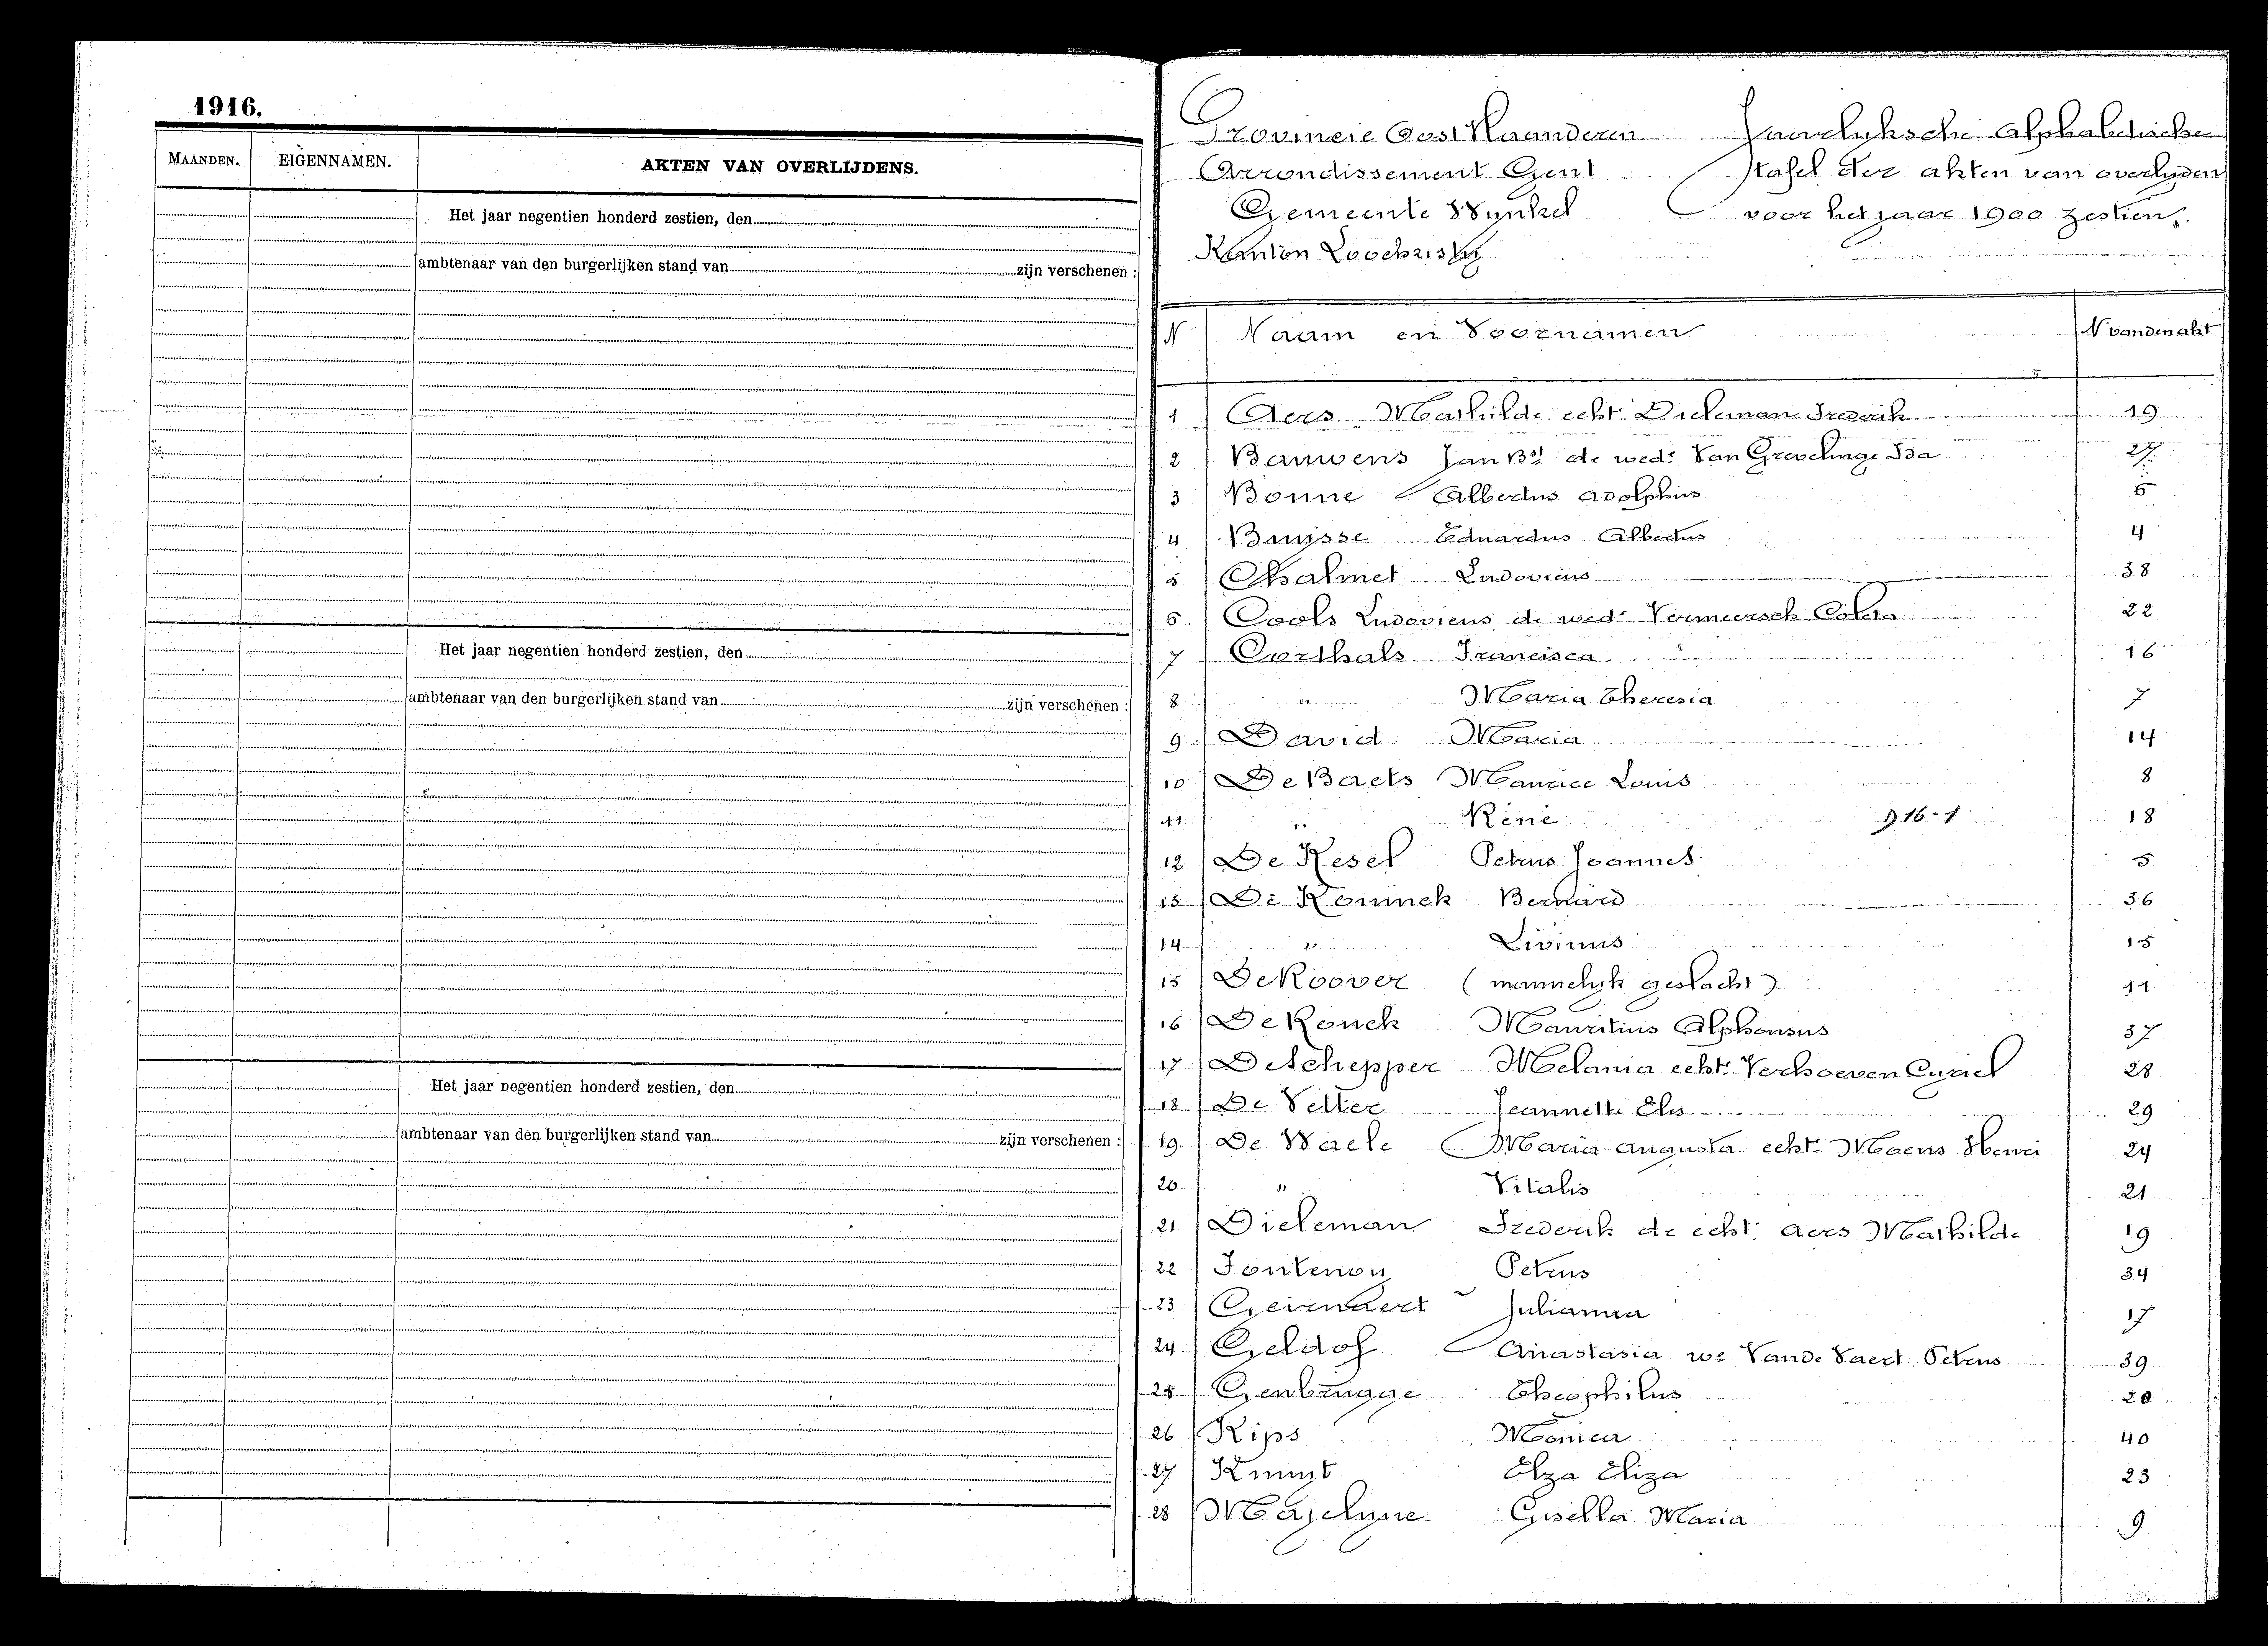 1916.
MAANDEN. EIGENNAMEN. AKTEN VAN OVERLIJDENS.
Het jaar negentien honderd zestien, den
ambtenaar van den burgerlijken stand van zijn verschenen :
Het jaar negentien honderd zestien, den
ambtenaar van den burgerlijken stand van zijn verschenen :
Het jaar negentien honderd zestien, den
ambtenaar van den burgerlijken stand van zijn verschenen :
Provincie Oost Vlaanderen Jaarlyksche Alphabetische
Arrondissement Gent tafel der akten van overlyden
Gemeente Wynkel voor het jaar 1900 zestien.
Kanton Loochristy
N Naam en Voornamen N van den akt
1 Aers Mathilde echt. Dieleman Frederik 19
2 Bauwens Jan Bt de wed: Van Grevelinge Ida 27
3 Bonne Albertus Adolphus 6
4 Buysse Eduardus Albertus 4
5 Chalmet Ludovicus 38
6 Cools Ludovicus de wed: Vermeersch Coleta 22
7 Corthals Francisca 16
8 " Maria Theresia 7
9 David Maria 14
10 De Baets Maurice Louis 8
11 " René 916-1 18
12 De Kesel Petrus Joannes 5
13 De Koninck Bernard 36
14 " Livinus 15
15 De Roover (mannelyk geslacht) 11
16 De Ronck Mauritius Alphonsus 37
17 De Schepper Melania echt. Verhoeven Cyriel 28
18 De Vetter Jeannette Elis 29
19 De Waele Maria Augusta echt. Moens Henri 24
20 " Vitalis 21
21 Dieleman Frederik de echt. Aers Mathilde 19
22 Fontenoy Petrus 34
23 Geirnaert Julianna 17
24 Geldof Anastasia we Vande Vaert Petrus 39
25 Genbrugge Theophilus 20
26 Kips Monica 40
27 Kunst Elza Eliza 23
28 Majelyne Gisella Maria 9